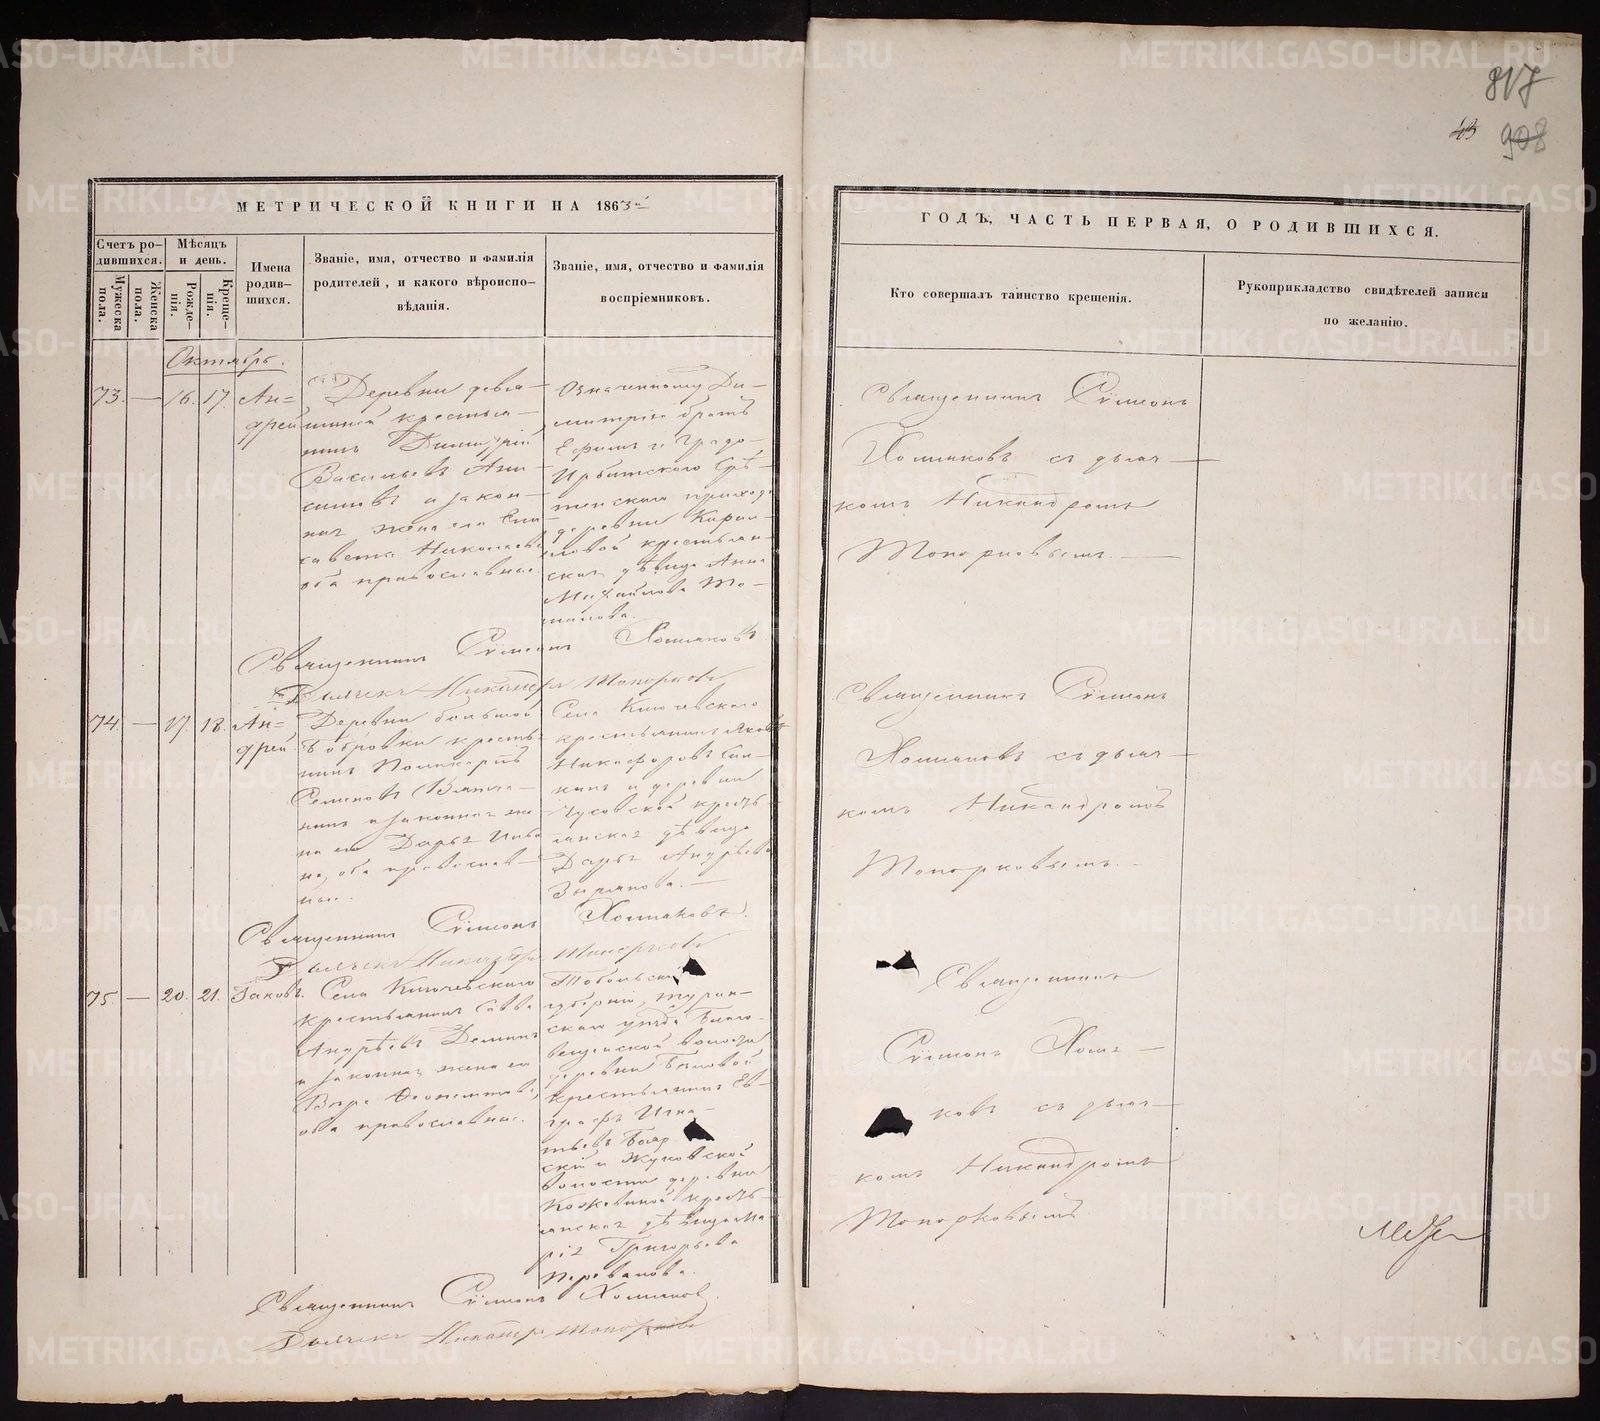 817
43 908
МЕТРИЧЕСКОЙ КНИГИ НА 1863й
ГОДЪ, ЧАСТЬ ПЕРВАЯ, О РОДИВШИХСЯ.
Счетъ ро-
дившихся.
Мужеска
пола.
Женска
пола.
Мѣсяцъ
и день.
Рожде-
нія.
Креще-
нія.
Имена
родив-
шихся.
Званіе, имя, отчество и фамилія
родителей, и какого вѣроиспо-
вѣданія.
Званіе, имя, отчество и фамилія
воспріемниковъ.
Кто совершалъ таинство крещенія.
Рукоприкладство свидѣтелей записи
по желанію.
Октябрь.
73. — 16. 17. Ан=
дрей
Деревни
крестья-
нинъ Димитрій
Васильевъ
и закон-
ная жена его Ели-
савета Николаева
оба православные.
Означенному Ди-
митрію братъ
Ефимъ и Градо-
Ирбитскаго Срѣ-
тенскаго прихода
деревни
крестьян-
ская дѣвица Анна
Михайлова
Священникъ Сѵмеонъ
Хомяковъ съ дьяч-
комъ Никандромъ
Топорковымъ. —
Священникъ Сѵмеонъ Хомяковъ
Дьячекъ Никандръ Топорковъ
74. — 17. 18. Ан=
дрей
Деревни большой
Бобровки крестья-
нинъ Поликарпъ
Семеновъ
и законная же
на его Дарья Ива
на, оба православ-
ные.
Села Ключевскаго
крестьянинъ Яковъ
Никифоровъ
и деревни
Чусовской кресть-
янская дѣвица
Дарья Андрѣева
Зырянова. —
Священникъ Сѵмеонъ
Хомяковъ съ дьяч-
комъ Никандромъ
Топорковымъ. -
Священникъ Сѵмеонъ Хомяковъ.
Дьячекъ Никандръ Топорковъ
75. — 20. 21. Іаковъ.
Села Ключевскаго
крестьянинъ Савва
Андрѣевъ Деминъ
и законная жена его
Вѣра
оба православные.
Тобольской
губерніи, Турин-
скаго уѣзда Благо-
вещенской волости
деревни
крестьянинъ Ев-
графъ Игна-
тьевъ Бояр
скій и Жуковской
волости деревни
Кожевиной кресть-
янская дѣвица Ма-
рія Григорьева
Перевалова.
Священникъ
Сѵмеонъ Хомя-
ковъ съ дьяч-
комъ Никандромъ
Топорковымъ
Священникъ Сѵмеонъ Хомяковъ.
Дьячекъ Никандръ Топорковъ
METRIKI.GASO-URAL.RU